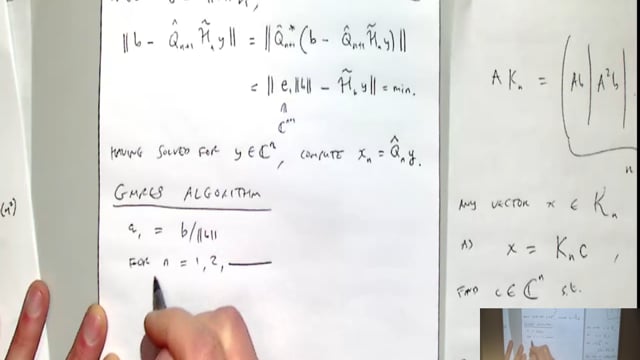 ‖b - Q̂ₙ₊₁ H̃ₙ y‖ = ‖Q̂ₙ₊₁* (b - Q̂ₙ₊₁ H̃ₙ y)‖
= ‖e₁‖b‖ - H̃ₙ y‖ = min.
∩
ℂⁿ⁺¹
HAVING SOLVED FOR y ∈ ℂⁿ, COMPUTE xₙ = Q̂ₙ y.
GMRES ALGORITHM
q₁ = b/‖b‖
FOR n = 1, 2,
A Kₙ = ( Ab | A²b |
n
ANY VECTOR x ∈ Kₙ
AS x = Kₙ c,
FIND c ∈ ℂⁿ s.t.